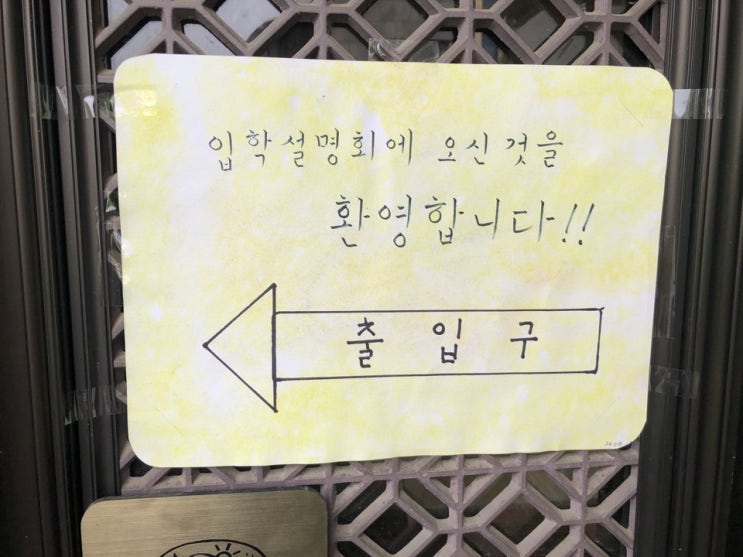 입학설명회에 오신 것을
환영합니다!!
출 입 구